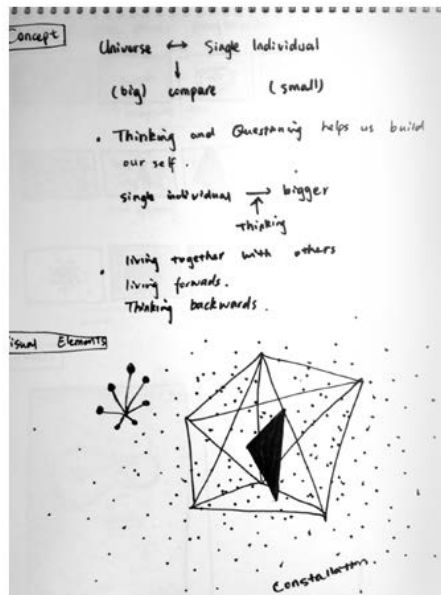 Concept
Universe ↔ Single Individual
↓
(big) compare (small)
• Thinking and Questaning helps us build
our self.
single individual → bigger
↑
thinking
• living together with others
living forwards.
Thinking backwards.
isual Elements
Constallattion